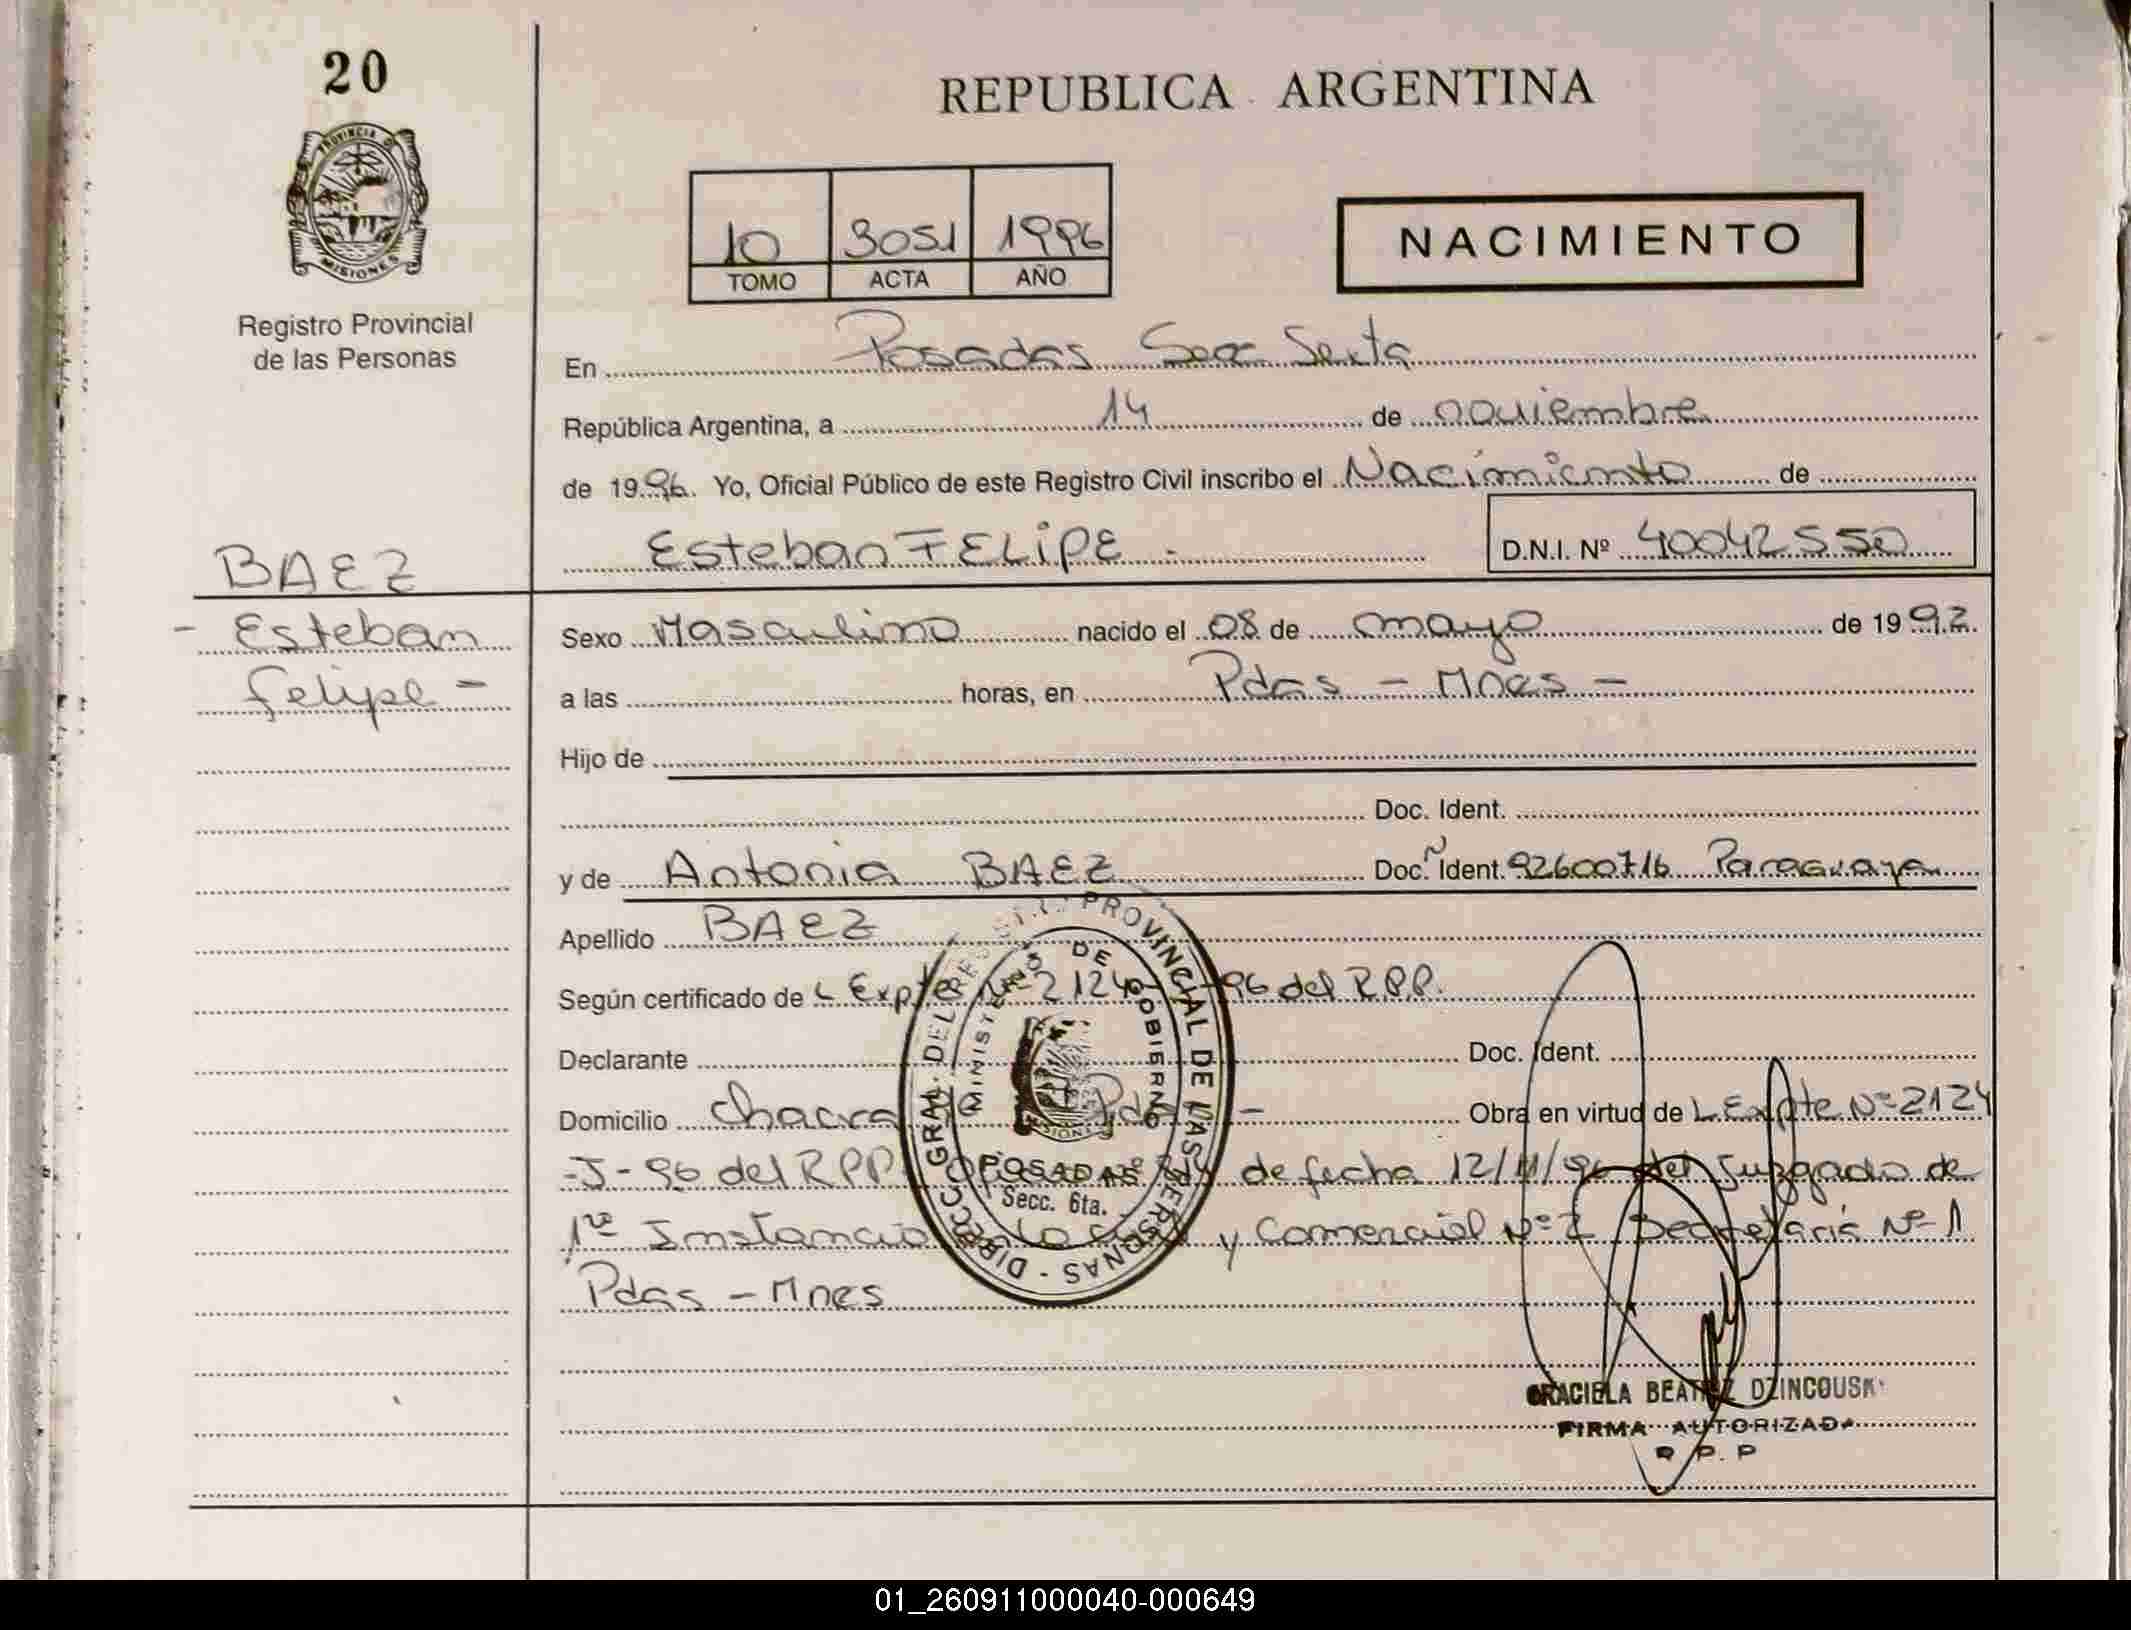 20
PROVINCIA DE
MISIONES
Registro Provincial
de las Personas
REPUBLICA ARGENTINA
10 3051 1996
TOMO ACTA AÑO
NACIMIENTO
En Posadas Secc Sexta
República Argentina, a 14 de noviembre
de 1996. Yo, Oficial Público de este Registro Civil inscribo el Nacimiento de
Esteban FELIPE -
D.N.I. Nº 40042550
BAEZ
- Esteban
Felipe -
Sexo Masculino nacido el 08 de mayo de 1992.
a las horas, en Pdas - Mnes -
Hijo de
Doc. Ident.
y de Antonia BAEZ Doc. Ident. 92600716 Paraguaya
Apellido BAEZ
Según certificado de L Expte Nº 2124 96 del R.P.P.
Declarante Doc. Ident.
Domicilio Chacra Pdas - Obra en virtud de L Expte Nº 2124
-J-96 del RPP de fecha 12/11/96 del Juzgado de
1ra Instancia y Comercial Nº 2 Secretaria Nº 1
Pdas - Mnes
DIRECC. GRAL. DEL REGISTRO PROVINCIAL DE LAS PERSONAS -
MINISTERIO DE GOBIERNO
MISIONES
POSADAS
Secc. 6ta.
GRACIELA BEATRIZ DZINCOUSKI
FIRMA AUTORIZADA
R P. P
01_260911000040-000649